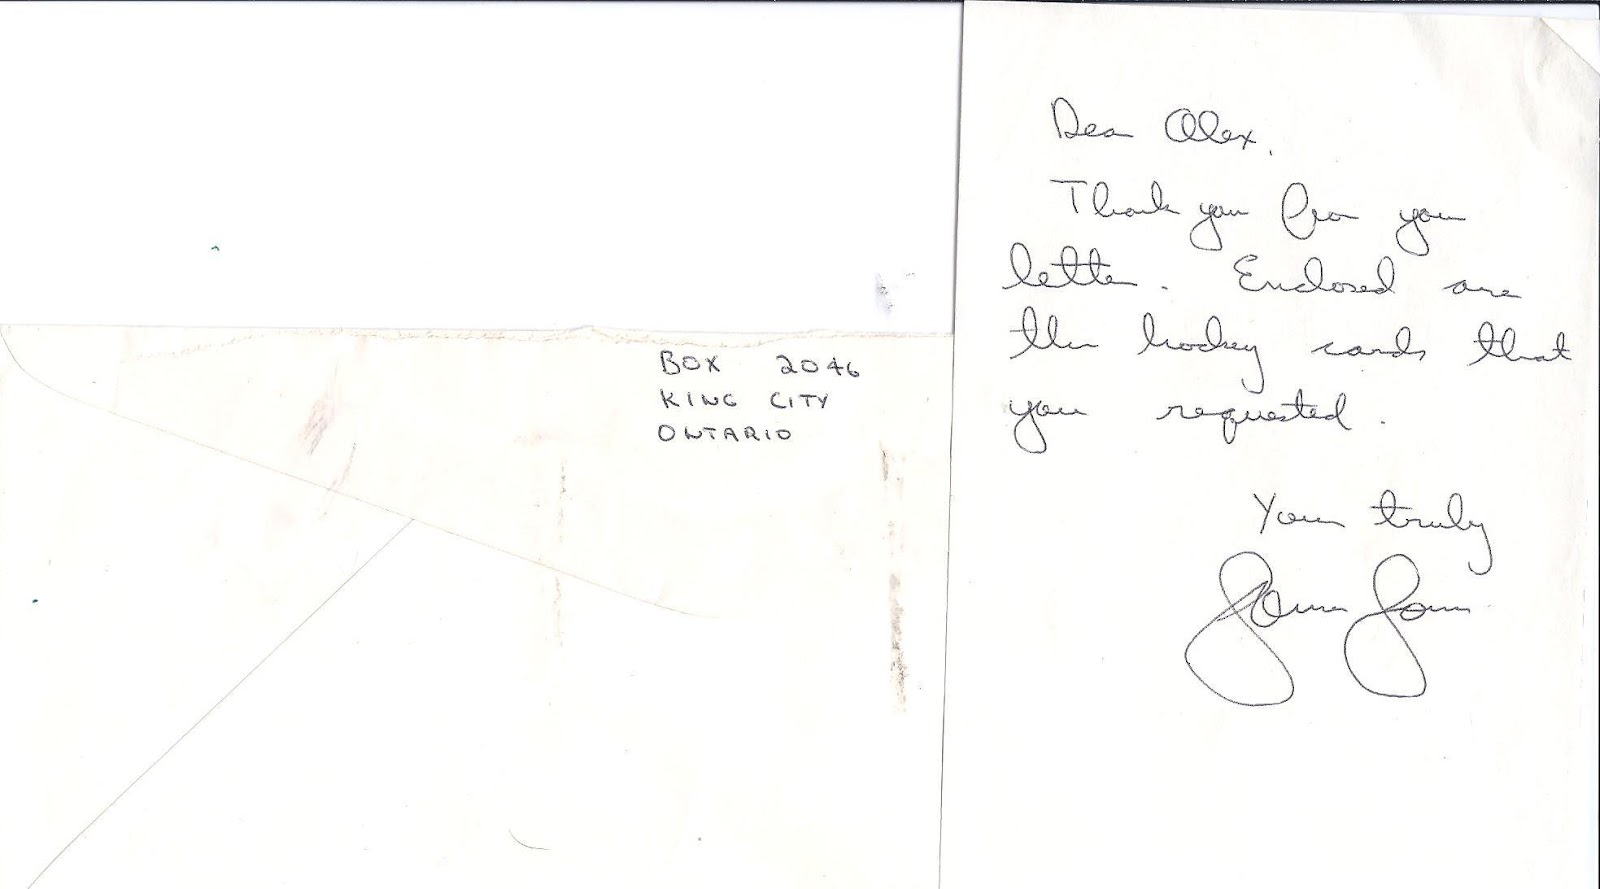 BOX 2046
KING CITY
ONTARIO
Dear Alex,
Thank you for your
letter. Enclosed are
the hockey cards that
you requested.
Yours truly